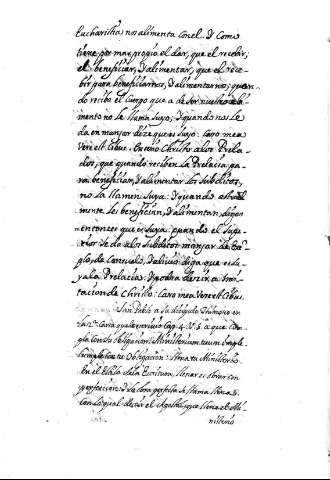 Eucharistia nos alimenta con el. Y como
tiene por mas proprio el dar, que el recebir;
el beneficiar, y alimentar, que el rece-
bir para beneficiarnos, y alimentarnos; quan-
do recibe el cuerpo que a de ser nuestro ali-
mento no le llama suyo; y quando nos le
da en manjar dize que es suyo: Caro mea
Vere est cibus. Christo a los Prela-
dos, que quando reciben la Prelacia pa-
ra beneficiar, y alimentar los subditos,
no la llamen suya: y quando
mente les benefician, y alimentan, digan
entonces que es suya: quando el supe-
rior se da a los subditos en manjar de
de consuelo, y alivio diga que es su-
ya la Prelacia: y podra dezir a imi-
tacion de Christo: Caro mea Vere est cibus.
San Pablo a su Timoteo en
la 2ª carta que le escrivio cap. 4. V. 5. a que cum-
pla con su obligacion: Ministerium tuum imple
cumple con tu obligacion: tu Ministerio
en el de la Escritura, llenar es obrar con
perfeccion: y la obra perfecta se llama llena:
con lo qual dezir el Apostol, que llene el Mi-
nisterio